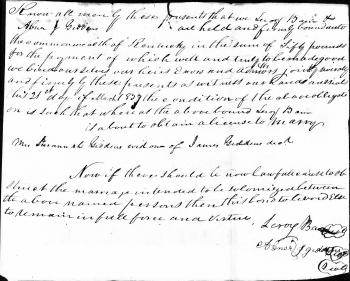 Know all men by these presents that we Leroy Bain &
Abner J Giddens are held and firmly bound unto
the commonwealth of Kentucky in the sum of Fifty pounds
for the payment of which well and truly to be made good
we bind ourselves our heirs Exors and admors jointly severally
and firmly by these presents as witness our hands and seals
this 21st day of March 1837 the condition of the above obligate
on is such that whereas the above bound Leroy Bain
is about to obtain a license to marry
Mrs Susannah Giddens widow of James Giddens decd
Now if there should be now lawful cause to ob
struct the marriage intended to be solemnized between
the above named persons then this bond to be void Else
to remain in full force and virtue
Leroy Bain
Abner J Giddens